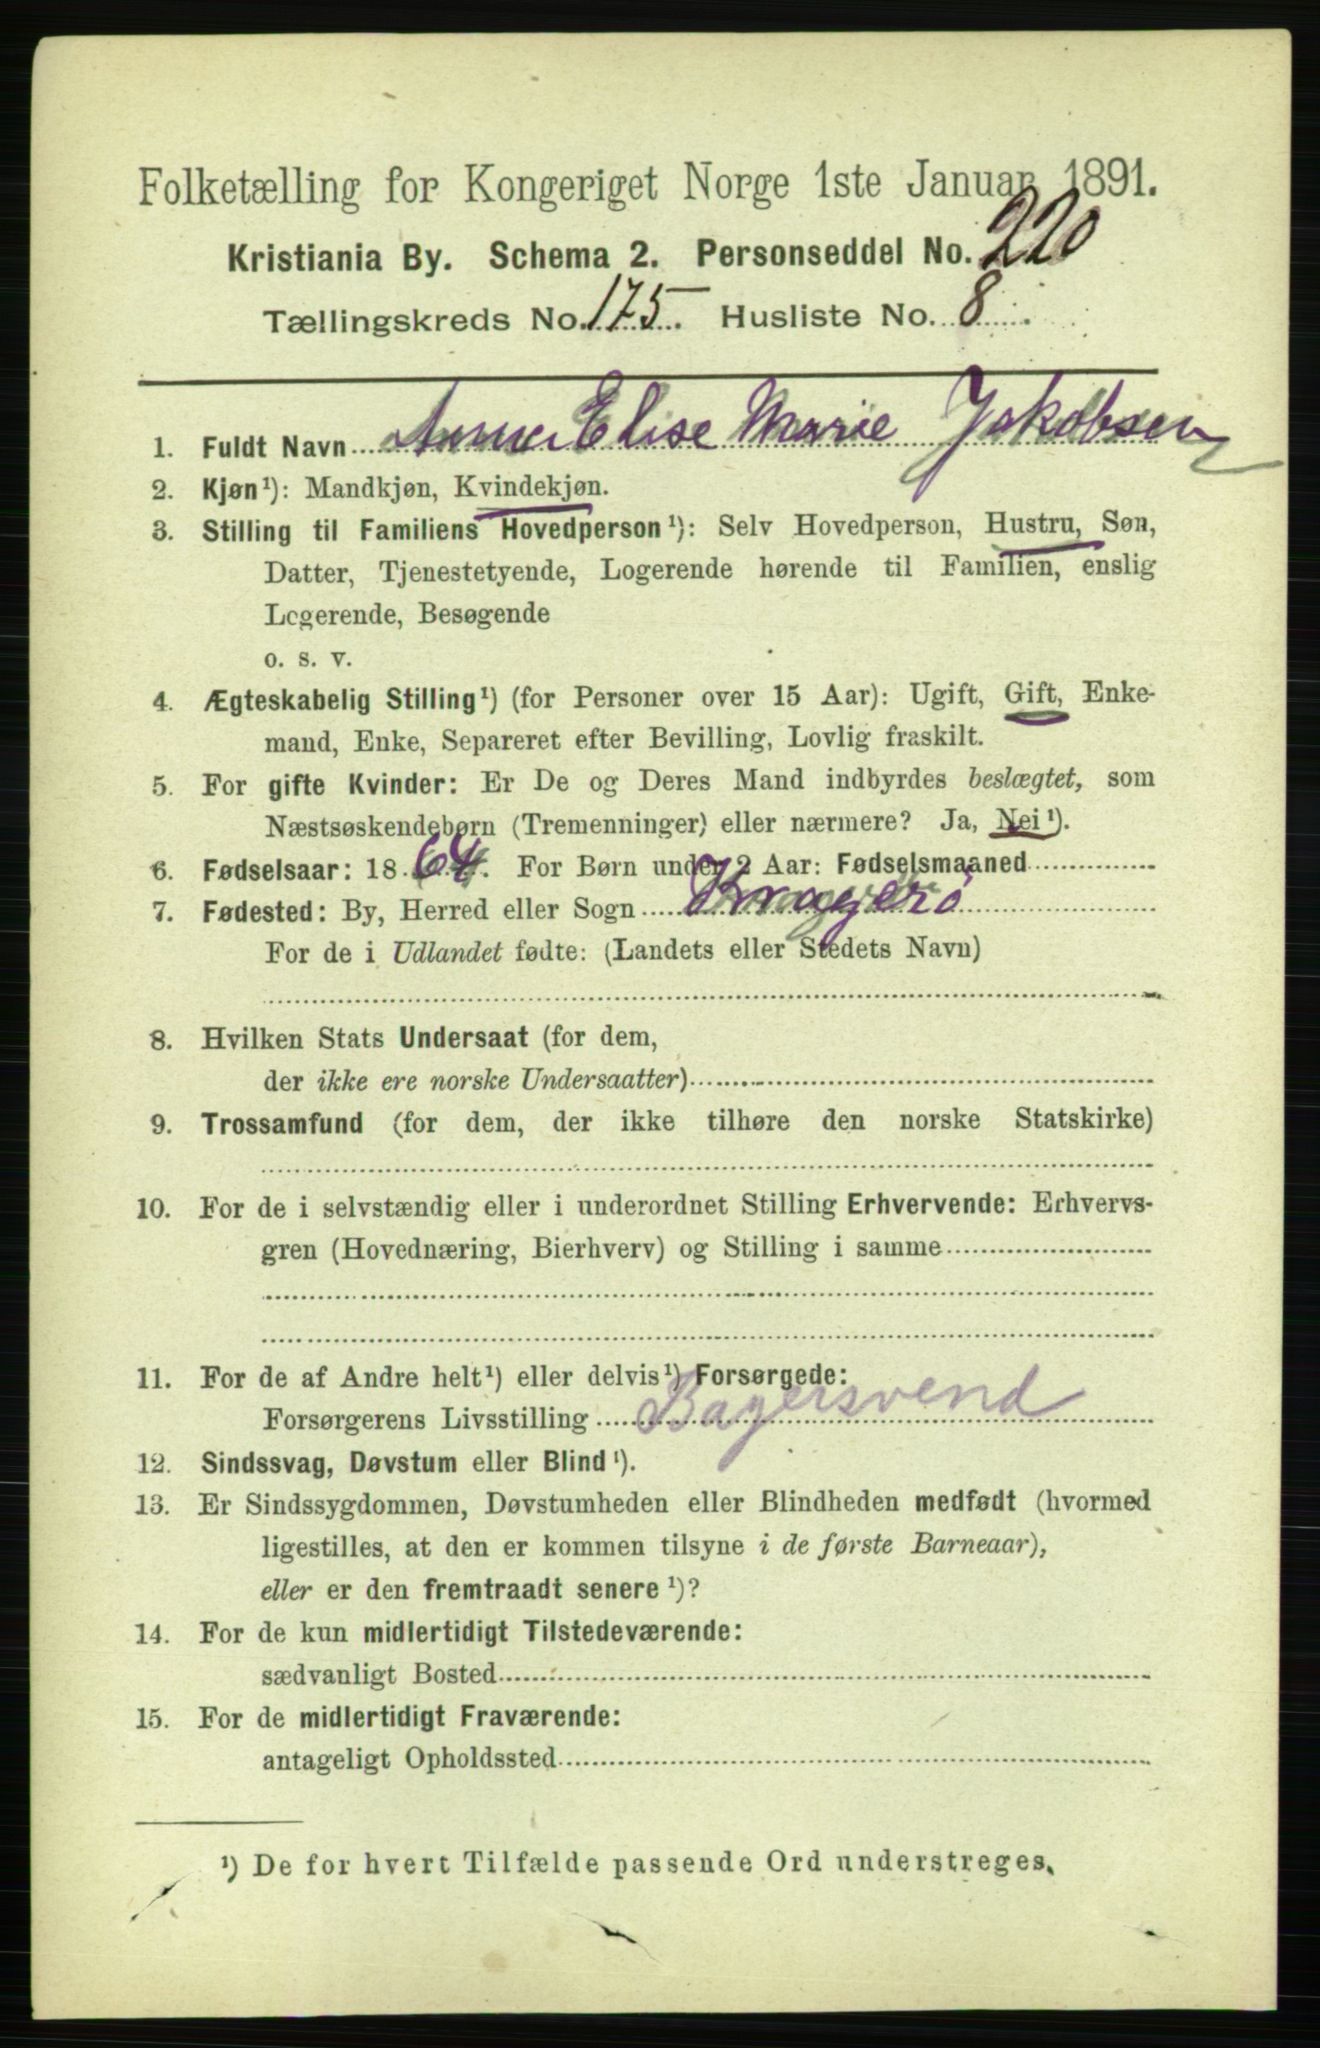 Folketælling for Kongeriget Norge 1ste Januar 1891.
Kristiania By. Schema 2. Personseddel No. 220
Tællingskreds No. 175. Husliste No. 8.
1. Fuldt Navn Anna Elise Marie Jakobsen
2. Kjøn¹): Mandkjøn, Kvindekjøn.
3. Stilling til Familiens Hovedperson¹): Selv Hovedperson, Hustru, Søn,
Datter, Tjenestetyende, Logerende hørende til Familien, enslig
Logerende, Besøgende
o. s. v.
4. Ægteskabelig Stilling¹) (for Personer over 15 Aar): Ugift, Gift, Enke-
mand, Enke, Separeret efter Bevilling, Lovlig fraskilt.
5. For gifte Kvinder: Er De og Deres Mand indbyrdes beslægtet, som
Næstsøskendebørn (Tremenninger) eller nærmere? Ja, Nei¹).
6. Fødselsaar: 1864. For Børn under 2 Aar: Fødselsmaaned
7. Fødested: By, Herred eller Sogn Kragerö
For de i Udlandet fødte: (Landets eller Stedets Navn)
8. Hvilken Stats Undersaat (for dem,
der ikke ere norske Undersaatter)
9. Trossamfund (for dem, der ikke tilhøre den norske Statskirke)
10. For de i selvstændig eller i underordnet Stilling Erhvervende: Erhvervs-
gren (Hovednæring, Bierhverv) og Stilling i samme
11. For de af Andre helt¹) eller delvis¹) Forsørgede:
Forsørgerens Livsstilling Bagersvend
12. Sindssvag, Døvstum eller Blind¹).
13. Er Sindssygdommen, Døvstumheden eller Blindheden medfødt (hvormed
ligestilles, at den er kommen tilsyne i de første Barneaar),
eller er den fremtraadt senere¹)?
14. For de kun midlertidigt Tilstedeværende:
sædvanligt Bosted
15. For de midlertidigt Fraværende:
antageligt Opholdssted
¹) De for hvert Tilfælde passende Ord understreges.